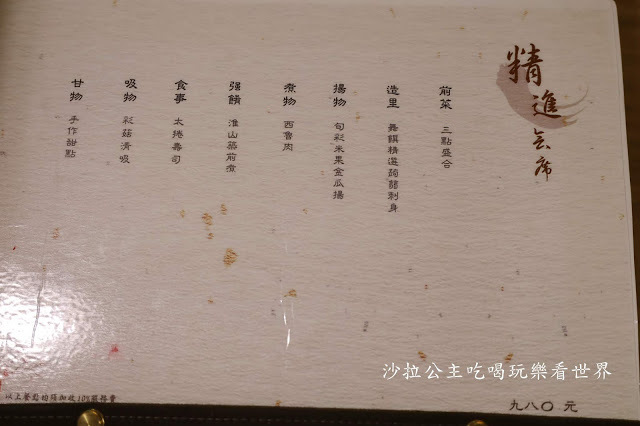 精進会席
前菜 三點盛合
造里 舞饌精選蒟蒻刺身
揚物 旬彩米果金瓜揚
煮物 西魯肉
强饌 淮山藥煎煮
食事 太捲壽司
吸物 彩菇清吸
甘物 手作甜點
九八〇 元
以上餐點均須加收10%服務費
沙拉公主吃喝玩樂看世界